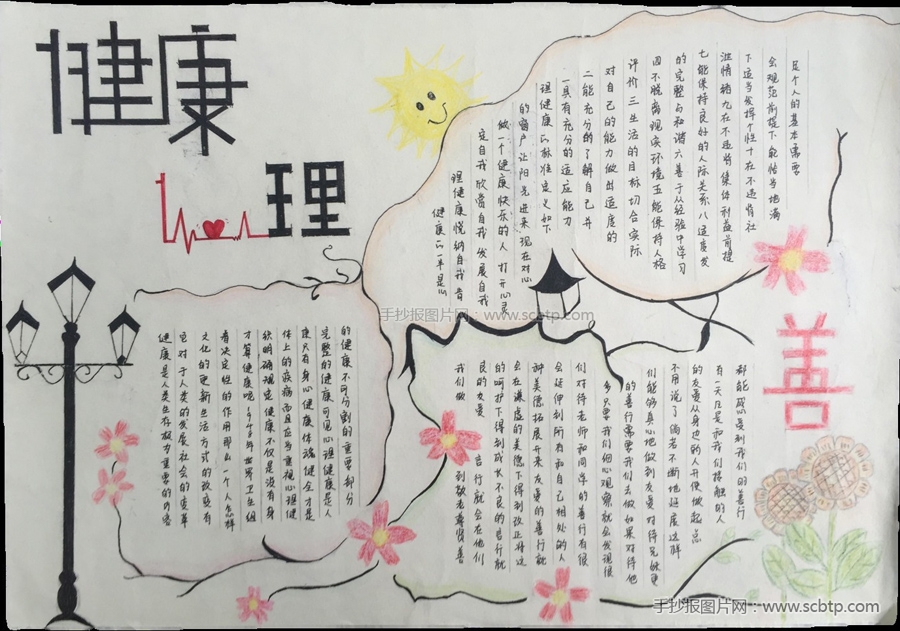 健康
心理
善
健康的一半是心
理健康悦纳自我肯
定自我欣赏自我发展自我
做一个健康快乐的人 打开心灵
的窗户让阳光进来 现在对心
理健康的标准定义如下
一具有充分的适应能力
二能充分的了解自己并
对自己的能力做出适度的
评价 三生活的目标切合实际
四不脱离现实环境五能保持人格
的完整与和谐六善于从经验中学习
七能保持良好的人际关系八适度发
泄情绪九在不违背集体利益前提
下适当发挥个性十在不违背社
会规范前提下能恰当地满
足个人的基本需要
健康是人类生存极为重要的内容
它对于人类的发展社会的变革
文化的更新生活方式的改变有
着决定性的作用那么一个人怎样
才算健康呢1948年世界卫生组
织明确规定健康不仅是没有身
体上的疾病而且应当重视心理健
康只有身心健康体魄健全才是
完整的健康可见心理健康是人
的健康不可分割的重要部分
我们做 到敬老尊贤善
良的友爱 言行就会在他们
的呵护下得到成长不良的言行就
会在谦虚的美德下得到改正将这
种美德拓展开来友爱的善行就
会延伸到所有和自己相处的人
们对待老师和同学的善行有很
多只要我们细心观察就会发现很
的善行需要我们去做如果对待他
们能够真心地做到友爱对待兄妹更
不用说了倘若不断地延展这样
的友爱从身边的人开使做起总
有一天凡是和我们接触的人
都能感心受到我们的善行
手抄报图片网：www.scbtp.com
手抄报图片网：www.scbtp.com